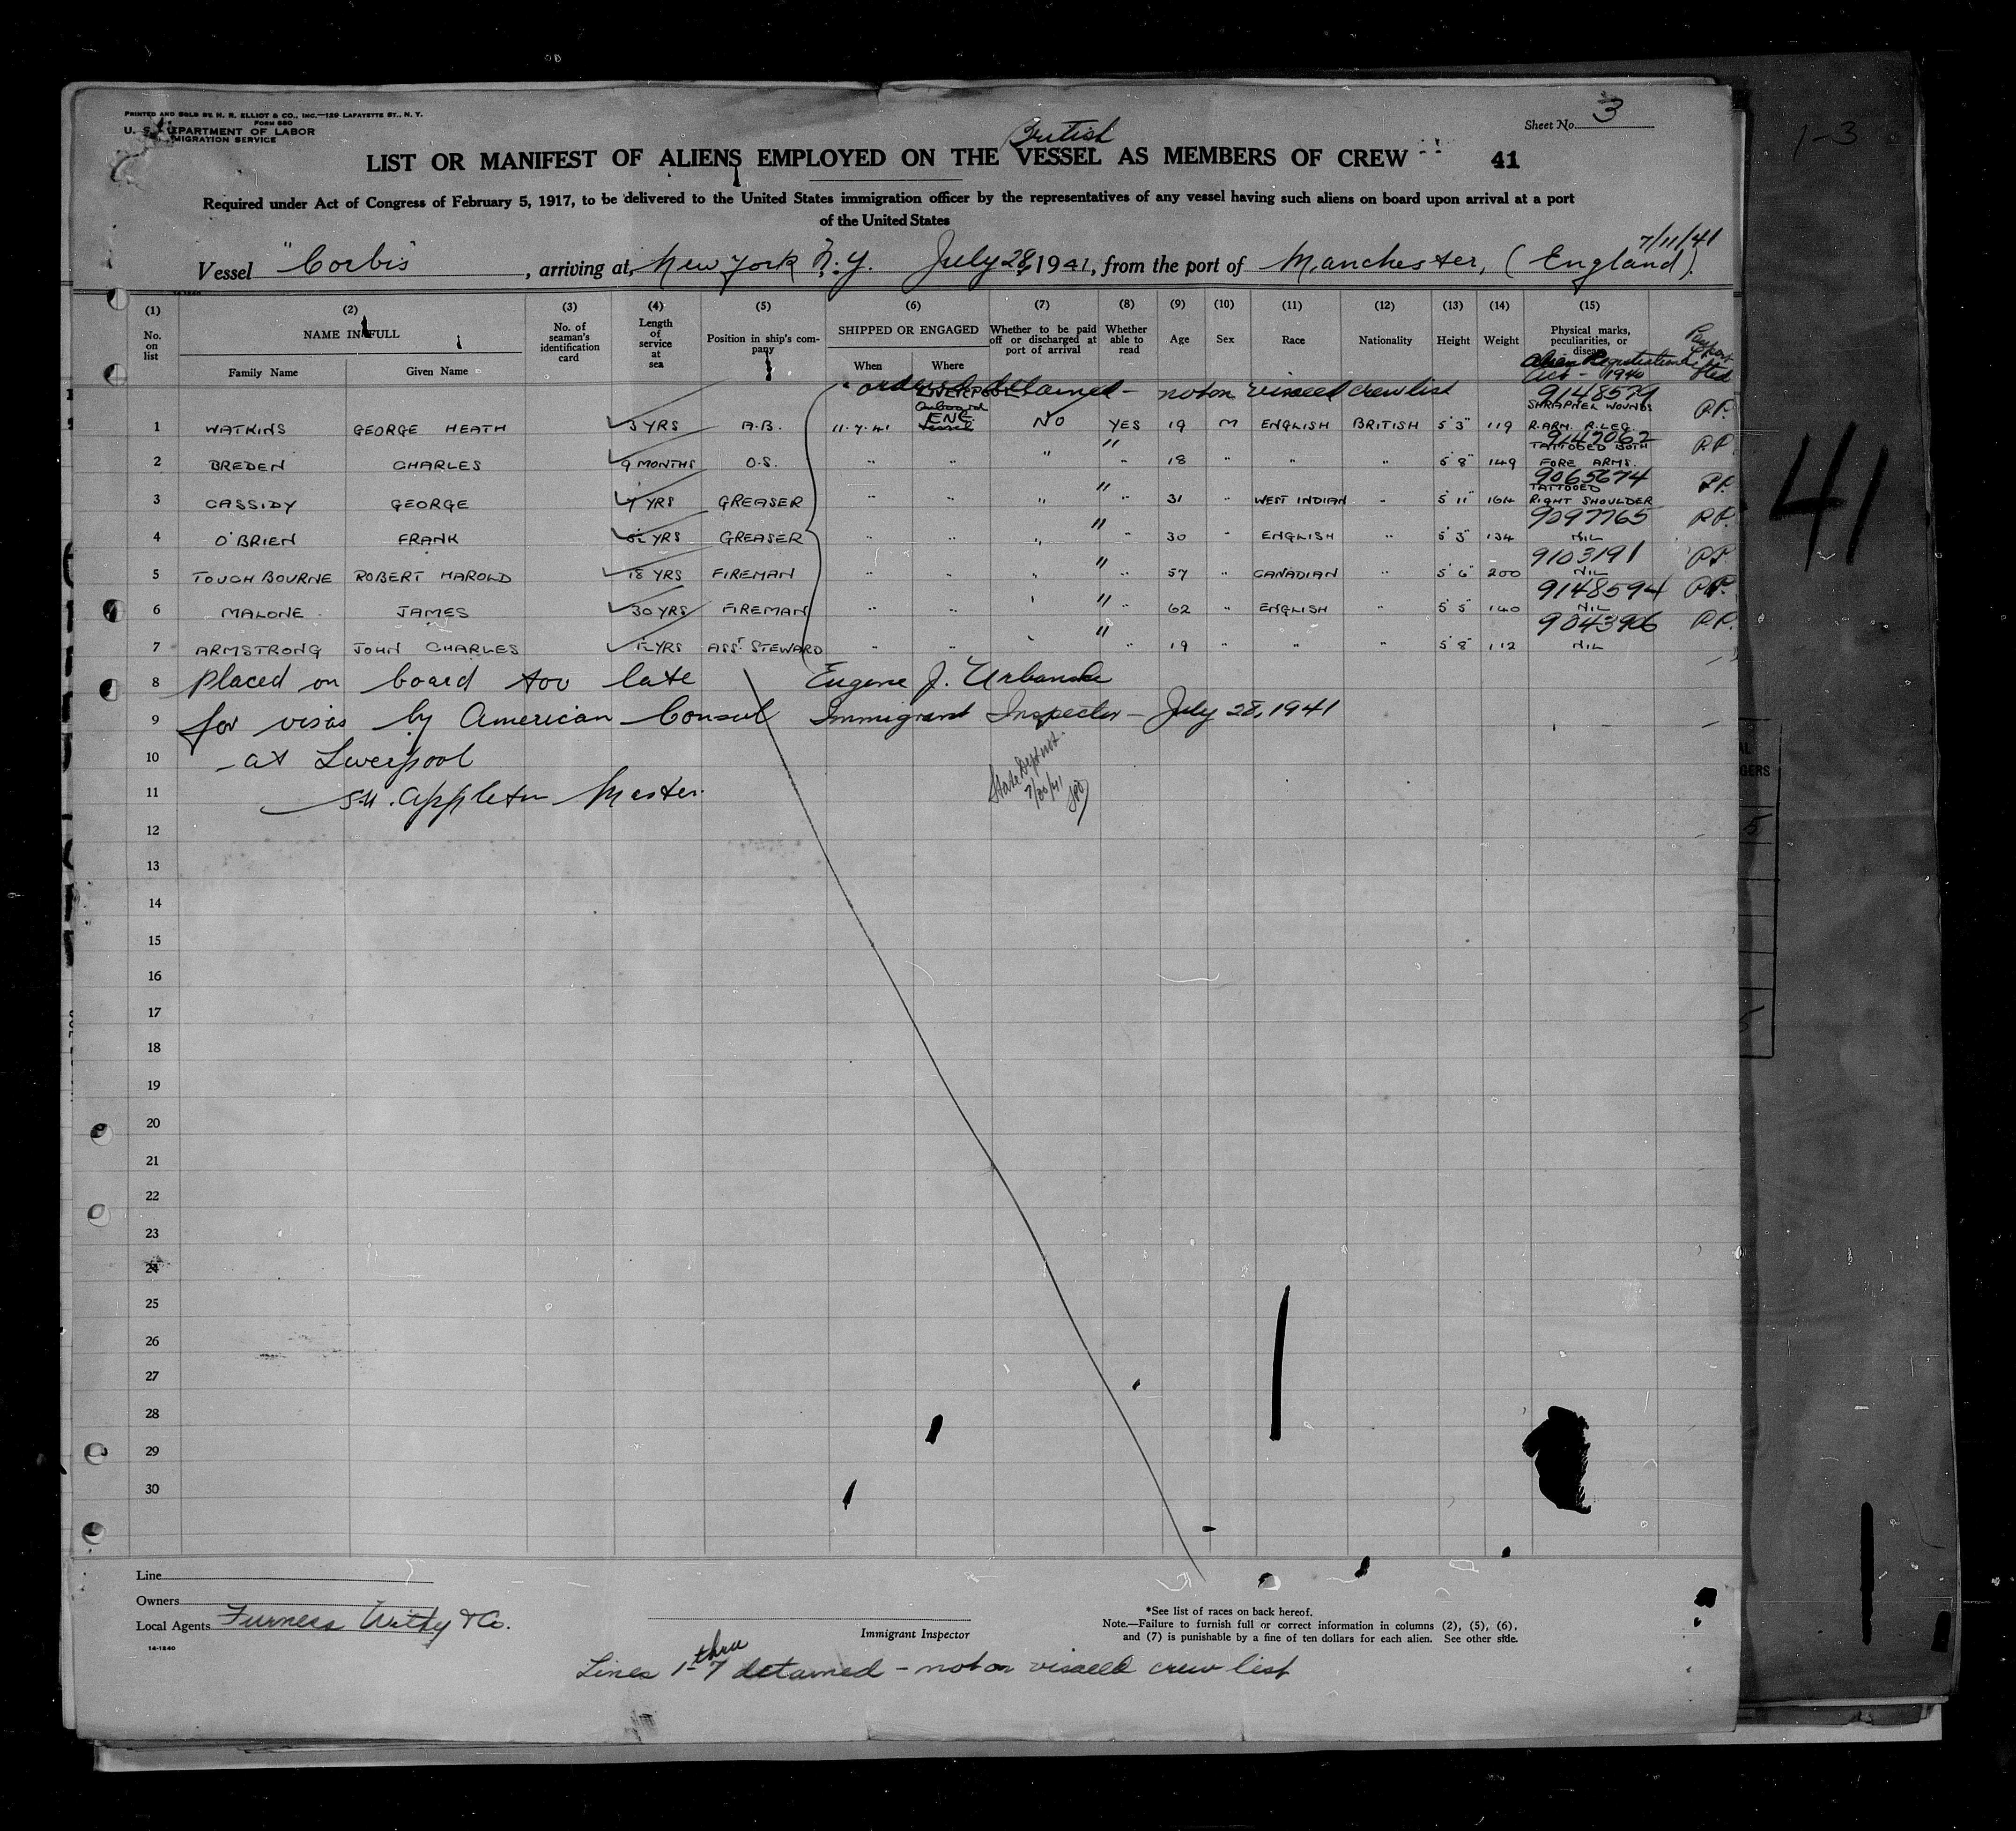 PRINTED AND SOLD BY H. R. ELLIOT & CO., INC.—129 LAFAYETTE ST., N. Y.
FORM 680
U. S. DEPARTMENT OF LABOR
IMMIGRATION SERVICE
Sheet No. 3
1-3
British
LIST OR MANIFEST OF ALIENS EMPLOYED ON THE VESSEL AS MEMBERS OF CREW 41
Required under Act of Congress of February 5, 1917, to be delivered to the United States immigration officer by the representatives of any vessel having such aliens on board upon arrival at a port
of the United States
7/11/41
Vessel "Corbis", arriving at, New York N.Y. July 28, 1941, from the port of Manchester, (England).
(1) (2) (3) (4) (5) (6) (7) (8) (9) (10) (11) (12) (13) (14) (15)
No. on list NAME IN FULL Family Name Given Name No. of seaman's identification card Length of service at sea Position in ship's company SHIPPED OR ENGAGED When Where Whether to be paid off or discharged at port of arrival Whether able to read Age Sex Race Nationality Height Weight Physical marks, peculiarities, or disease
Alien Registration Act - 1940
ordered detained - not on visaed crew list
LIVERPOOL ENG. onboard vessel
1 WATKINS GEORGE HEATH 3 YRS A.B. 11.7.41 No YES 19 M ENGLISH BRITISH 5'3" 119 9148579 SHRAPNEL WOUNDS R.ARM. R.LEG. P.P.
2 BREDEN CHARLES 9 MONTHS O.S. " " " " " 18 " " " 5'8" 149 9147062 TATTOOED BOTH FORE ARMS. P.P.
3 CASSIDY GEORGE YRS GREASER " " " " " 31 " WEST INDIAN " 5'11" 164 9065674 TATTOOED RIGHT SHOULDER P.P.
4 O'BRIEN FRANK YRS GREASER " " " " " 30 " ENGLISH " 5'3" 134 9097765 NIL P.P.
5 TOUCHBOURNE ROBERT HAROLD 18 YRS FIREMAN " " " " " 57 " CANADIAN " 5'6" 200 9103191 NIL P.P.
6 MALONE JAMES 30 YRS FIREMAN " " " " " 62 " ENGLISH " 5'5" 140 9148594 NIL P.P.
7 ARMSTRONG JOHN CHARLES YRS ASST. STEWARD " " " " " 19 " " " 5'8" 112 9043906 NIL P.P.
8 Placed on board too late Eugene J. Urbanski
9 for visas by American Consul Immigrant Inspector - July 28, 1941
10 at Liverpool
11 Appleton Master.
State Dept
7/30/41
12
13
14
15
16
17
18
19
20
21
22
23
24
25
26
27
28
29
30
41
Line
Owners
Local Agents Furness Withy & Co.
14-1240
Immigrant Inspector
*See list of races on back hereof.
Note.—Failure to furnish full or correct information in columns (2), (5), (6),
and (7) is punishable by a fine of ten dollars for each alien. See other side.
Lines 1 thru 7 detained - not on visaed crew list